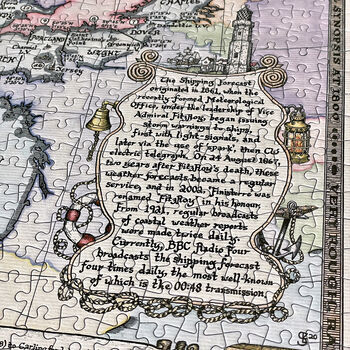 DOVER
WIGHT
Portland
The Shipping Forecast
originated in 1861, when the
recently formed Meteorological
Office, under the leadership of Vice
Admiral FitzRoy, began issuing
storm warnings to ships,
first with light signals, and
later via the use of
electric telegraph. On 24 August 1867,
two years after FitzRoy's death, these
weather forecasts became a regular
service, and in 2002, 'Finisterre' was
renamed 'FitzRoy' in his honour.
From 1921, regular broadcasts
of coastal weather reports
were made twice daily.
Currently, BBC Radio Four
broadcasts the shipping forecast
four times daily, the most well-known
of which is the 00:48 transmission.
SYNOPSIS AT 1800
VERY ROUGH
20